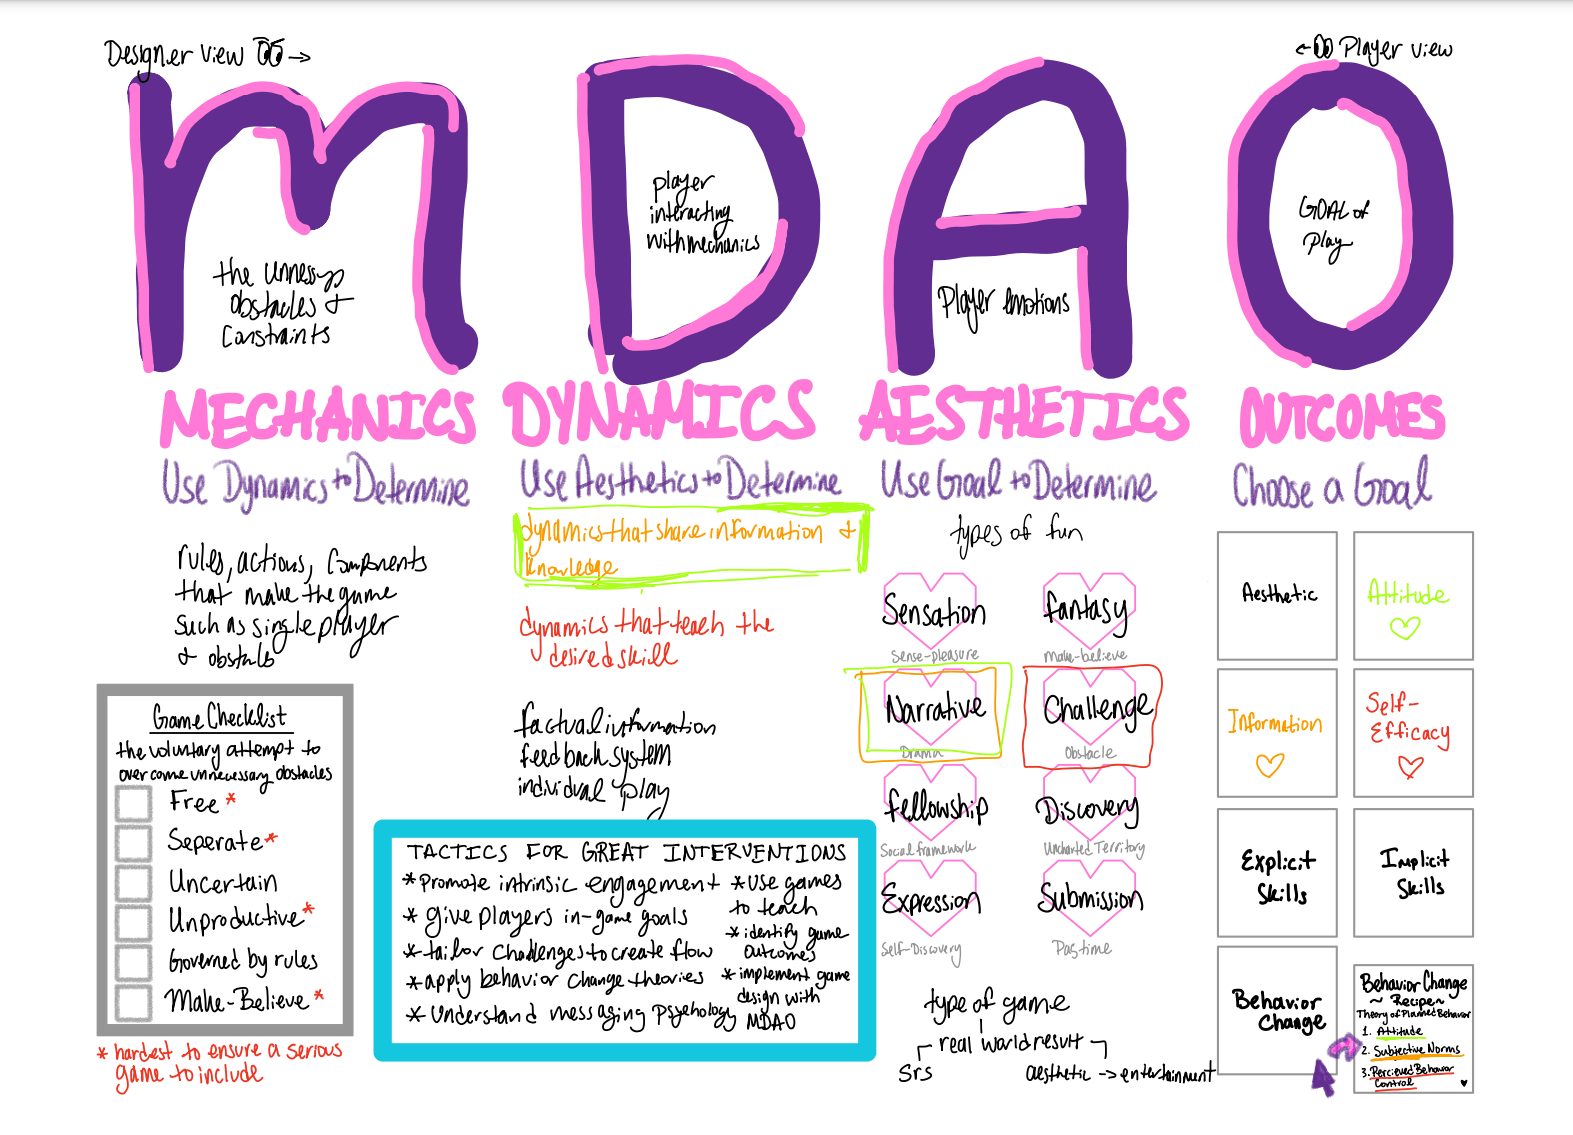 Designer view →
← Player view
MDAO
the unnessy
obstacles &
constraints
player
interacting
with mechanics
Player emotions
GOAL of
Play
MECHANICS
Use Dynamics to Determine
rules, actions, components
that make the game
such as single player
& obstacls
Game Checklist
the voluntary attempt to
over come unnecessary obstacles
Free *
Seperate *
Uncertain
Unproductive *
Governed by rules
Make-Believe *
* hardest to ensure a serious
game to include
DYNAMICS
Use Aesthetics to Determine
dynamics that share information &
knowledge
dynamics that teach the
desired skill
factual information
feedback system
individual play
TACTICS FOR GREAT INTERVENTIONS
* Promote intrinsic engagement
* give players in-game goals
* tailor challenges to create flow
* apply behavior change theories
* Understand messaging Psychology
* use games
to teach
* identify game
outcomes
* implement game
design with
MDAO
AESTHETICS
Use Goal to Determine
types of fun
Sensation
Sense-pleasure
fantasy
make-believe
Narrative
Drama
Challenge
Obstacle
fellowship
Social framework
Discovery
Uncharted Territory
Expression
Self-Discovery
Submission
Pastime
type of game
real world result
Srs
aesthetic → entertainment
OUTCOMES
Choose a Goal
Aesthetic
Attitude
Information
Self-
Efficacy
Explicit
Skills
Implicit
Skills
Behavior
Change
Behavior Change
~ Recipe ~
Theory of Planned Behavior
1. Attitude
2. Subjective Norms
3. Percieved Behavior
Control